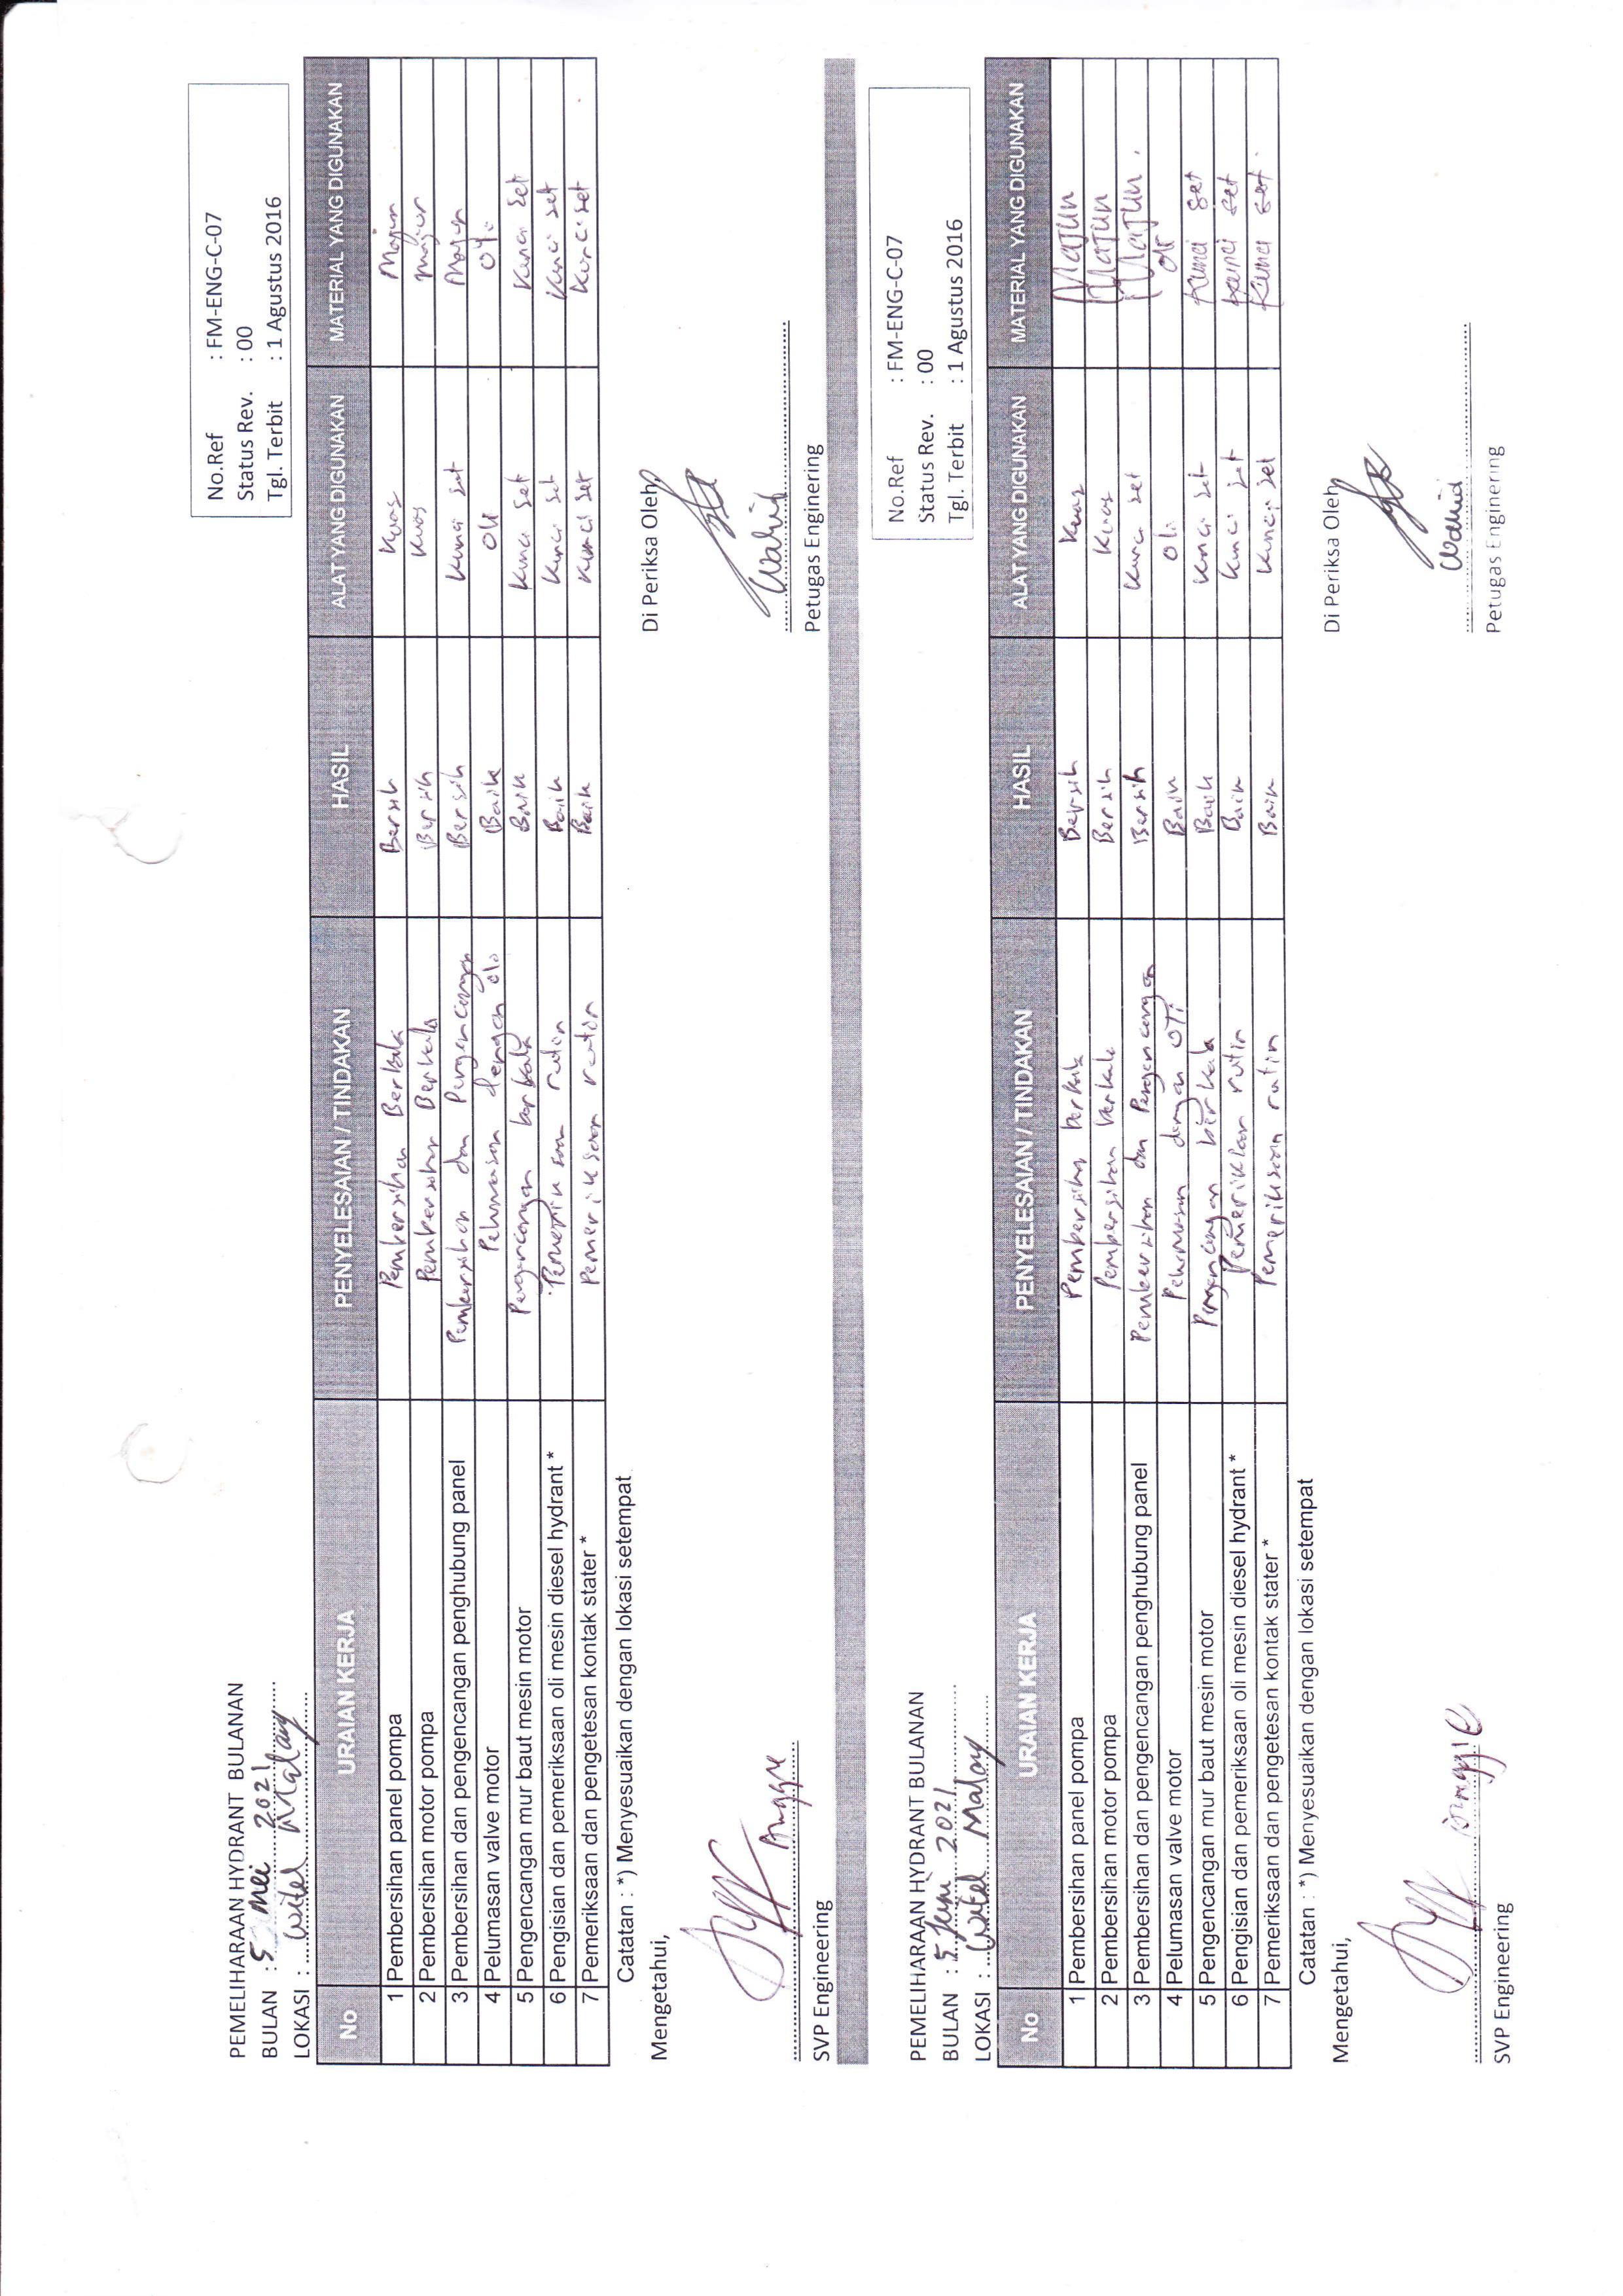 No.Ref : FM-ENG-C-07
Status Rev. : 00
Tgl. Terbit : 1 Agustus 2016
PEMELIHARAAN HYDRANT BULANAN
BULAN : 5 Mei 2021
LOKASI : Witel Malang
No URAIAN KERJA PENYELESAIAN / TINDAKAN HASIL ALAT YANG DIGUNAKAN MATERIAL YANG DIGUNAKAN
1 Pembersihan panel pompa Pembersihan Berkala Bersih Kuas Majun
2 Pembersihan motor pompa Pembersihan Berkala Bersih Kuas majun
3 Pembersihan dan pengencangan penghubung panel Pembersihan dan Pengencangan Bersih Kunci set Majun
4 Pelumasan valve motor Pelumasan dengan oli Baik Oli Oli
5 Pengencangan mur baut mesin motor Pengencangan berkala Baik Kunci set Kunci set
6 Pengisian dan pemeriksaan oli mesin diesel hydrant * Pemeriksaan rutin Baik Kunci set Kunci set
7 Pemeriksaan dan pengetesan kontak stater * Pemeriksaan rutin Baik Kunci set Kunci set
Catatan : *) Menyesuaikan dengan lokasi setempat
Mengetahui, Di Periksa Oleh,
Anggie Wahid
SVP Engineering Petugas Enginering
No.Ref : FM-ENG-C-07
Status Rev. : 00
Tgl. Terbit : 1 Agustus 2016
PEMELIHARAAN HYDRANT BULANAN
BULAN : 5 Juni 2021
LOKASI : Witel Malang
No URAIAN KERJA PENYELESAIAN / TINDAKAN HASIL ALAT YANG DIGUNAKAN MATERIAL YANG DIGUNAKAN
1 Pembersihan panel pompa Pembersihan berkala Bersih Kuas Majun
2 Pembersihan motor pompa Pembersihan berkala Bersih Kuas Majun
3 Pembersihan dan pengencangan penghubung panel Pembersihan dan Pengencangan Bersih Kunci set Majun
4 Pelumasan valve motor Pelumasan dengan Oli Baik Oli Oli
5 Pengencangan mur baut mesin motor Pengencangan berkala Baik Kunci set Kunci set
6 Pengisian dan pemeriksaan oli mesin diesel hydrant * Pemeriksaan rutin Baik Kunci set kunci set
7 Pemeriksaan dan pengetesan kontak stater * Pemeriksaan rutin Baik Kunci set Kunci set
Catatan : *) Menyesuaikan dengan lokasi setempat
Mengetahui, Di Periksa Oleh,
Anggie Wahid
SVP Engineering Petugas Enginering